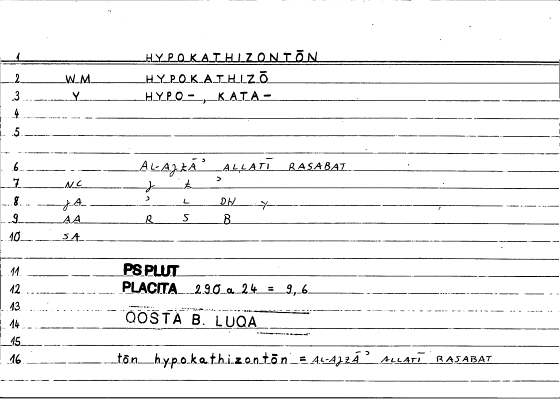 1 HYPOKATHIZONTŌN
2 WM HYPOKATHIZŌ
3 Y HYPO-, KATA-
4
5
6 AL-AJZĀʾ ALLATĪ RASABAT
7 NC J Z ʾ
8 JA ʾ L DH Y
9 AA R S B
10 SA
11 PS PLUT
12 PLACITA 290 a 24 = 9,6
13
14 QOSTA B. LUQA
15
16 tōn hypokathizontōn = AL-AJZĀʾ ALLATĪ RASABAT